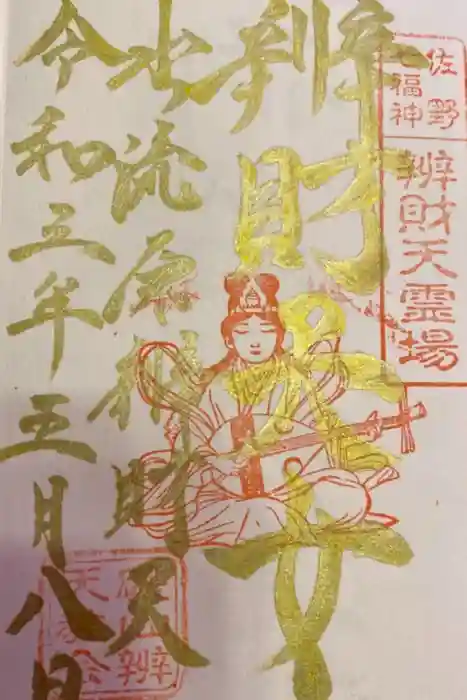 佐野
七福神
辨財天霊場
辨財天女
出流原辨財天
令和五年五月八日
磯山辨
天教会